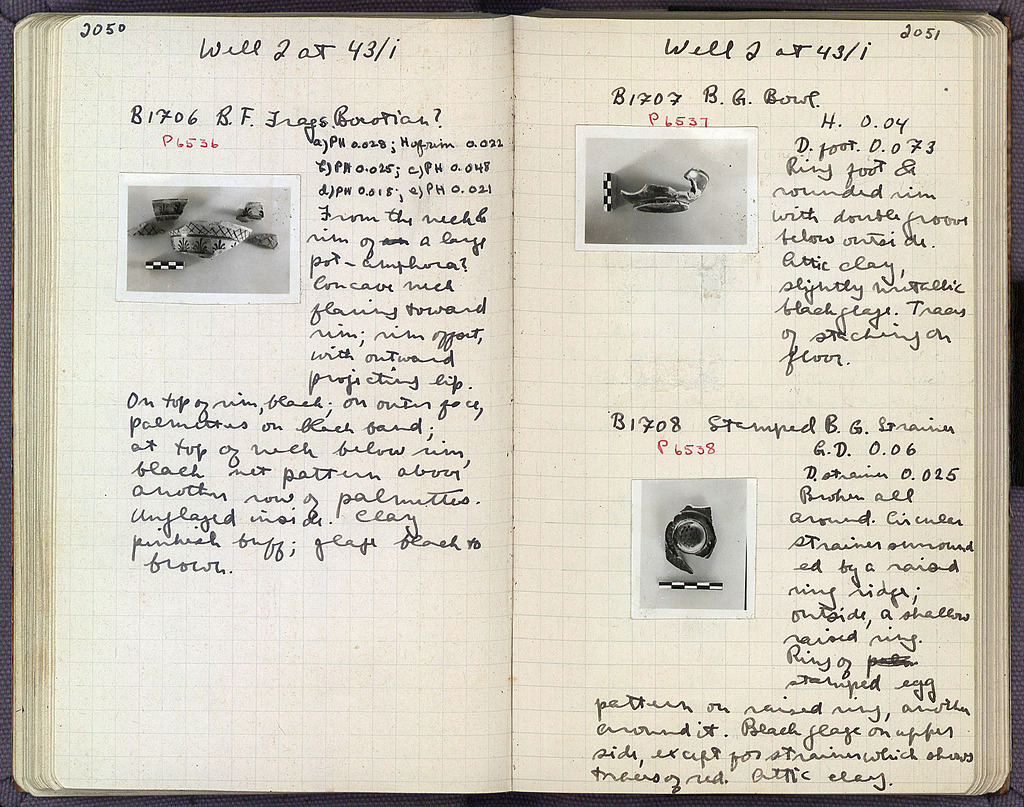 2050
Well 2 at 43/i
B1706 B.F. Frags. Boeotian?
P6536
a) PH 0.028; H of rim 0.022
b) PH 0.025; c) PH 0.048
d) PH 0.015; e) PH 0.021
From the neck &
rim of a large
pot - amphora?
Concave neck
flaring toward
rim; rim offset,
with outward
projecting lip.
On top of rim, black; on outer face,
palmettes on black band;
at top of neck below rim,
black net pattern above
another row of palmettes.
Unglazed inside. Clay
pinkish buff; glaze black to
brown.
2051
Well 2 at 43/i
B1707 B.G. Bowl.
P6537
H. 0.04
D. foot. 0.073
Ring foot &
rounded rim
with double groove
below outside.
Attic clay,
slightly metallic
black glaze. Traces
of stacking on
floor.
B1708 Stamped B.G. Strainer
P6538
G.D. 0.06
D. strainer 0.025
Broken all
around. Circular
strainer surround
ed by a raised
ring ridge;
outside, a shallow
raised ring.
Ring of
stamped egg
pattern on raised ring, another
around it. Black glaze on upper
side, except for strainer which shows
traces of red. Attic clay.